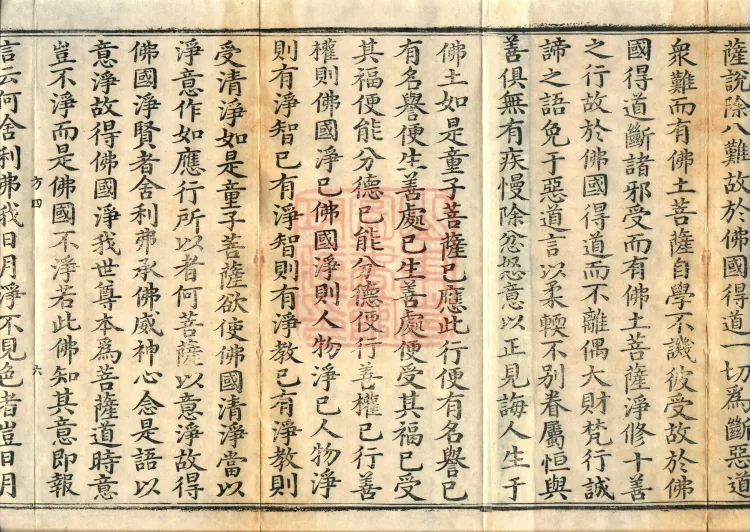 薩說除八難故於佛國得道一切爲斷惡道
衆難而有佛土菩薩自學不譏彼受故於佛
國得道斷諸邪受而有佛土菩薩淨修十善
之行故於佛國得道而不離偶大財梵行誠
諦之語免于惡道言以柔輭不別眷屬恒與
善俱無有疾慢除忿怒意以正見誨人生于
佛土如是童子菩薩已應此行便有名譽已
有名譽便生善處已生善處便受其福已受
其福便能分德已能分德便行善權已行善
權則佛國淨已佛國淨則人物淨已人物淨
則有淨智已有淨智則有淨教已有淨教則
受清淨如是童子菩薩欲使佛國清淨當以
淨意作如應行所以者何菩薩以意淨故得
佛國淨賢者舍利弗承佛威神心念是語以
意淨故得佛國淨我世尊本爲菩薩道時意
豈不淨而是佛國不淨若此佛知其意即報
方四 六
言云何舍利弗我日月淨不見色者豈日月